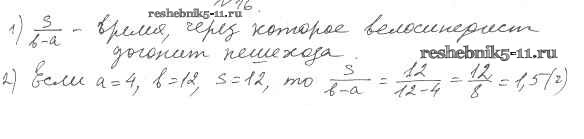 №16.
1) s/(b-a) - время, через которое велосипедист
reshebnik5-11.ru
догонит пешехода.
reshebnik5-11.ru
2) Если a=4, b=12, s=12, то s/(b-a) = 12/(12-4) = 12/8 = 1,5 (ч)